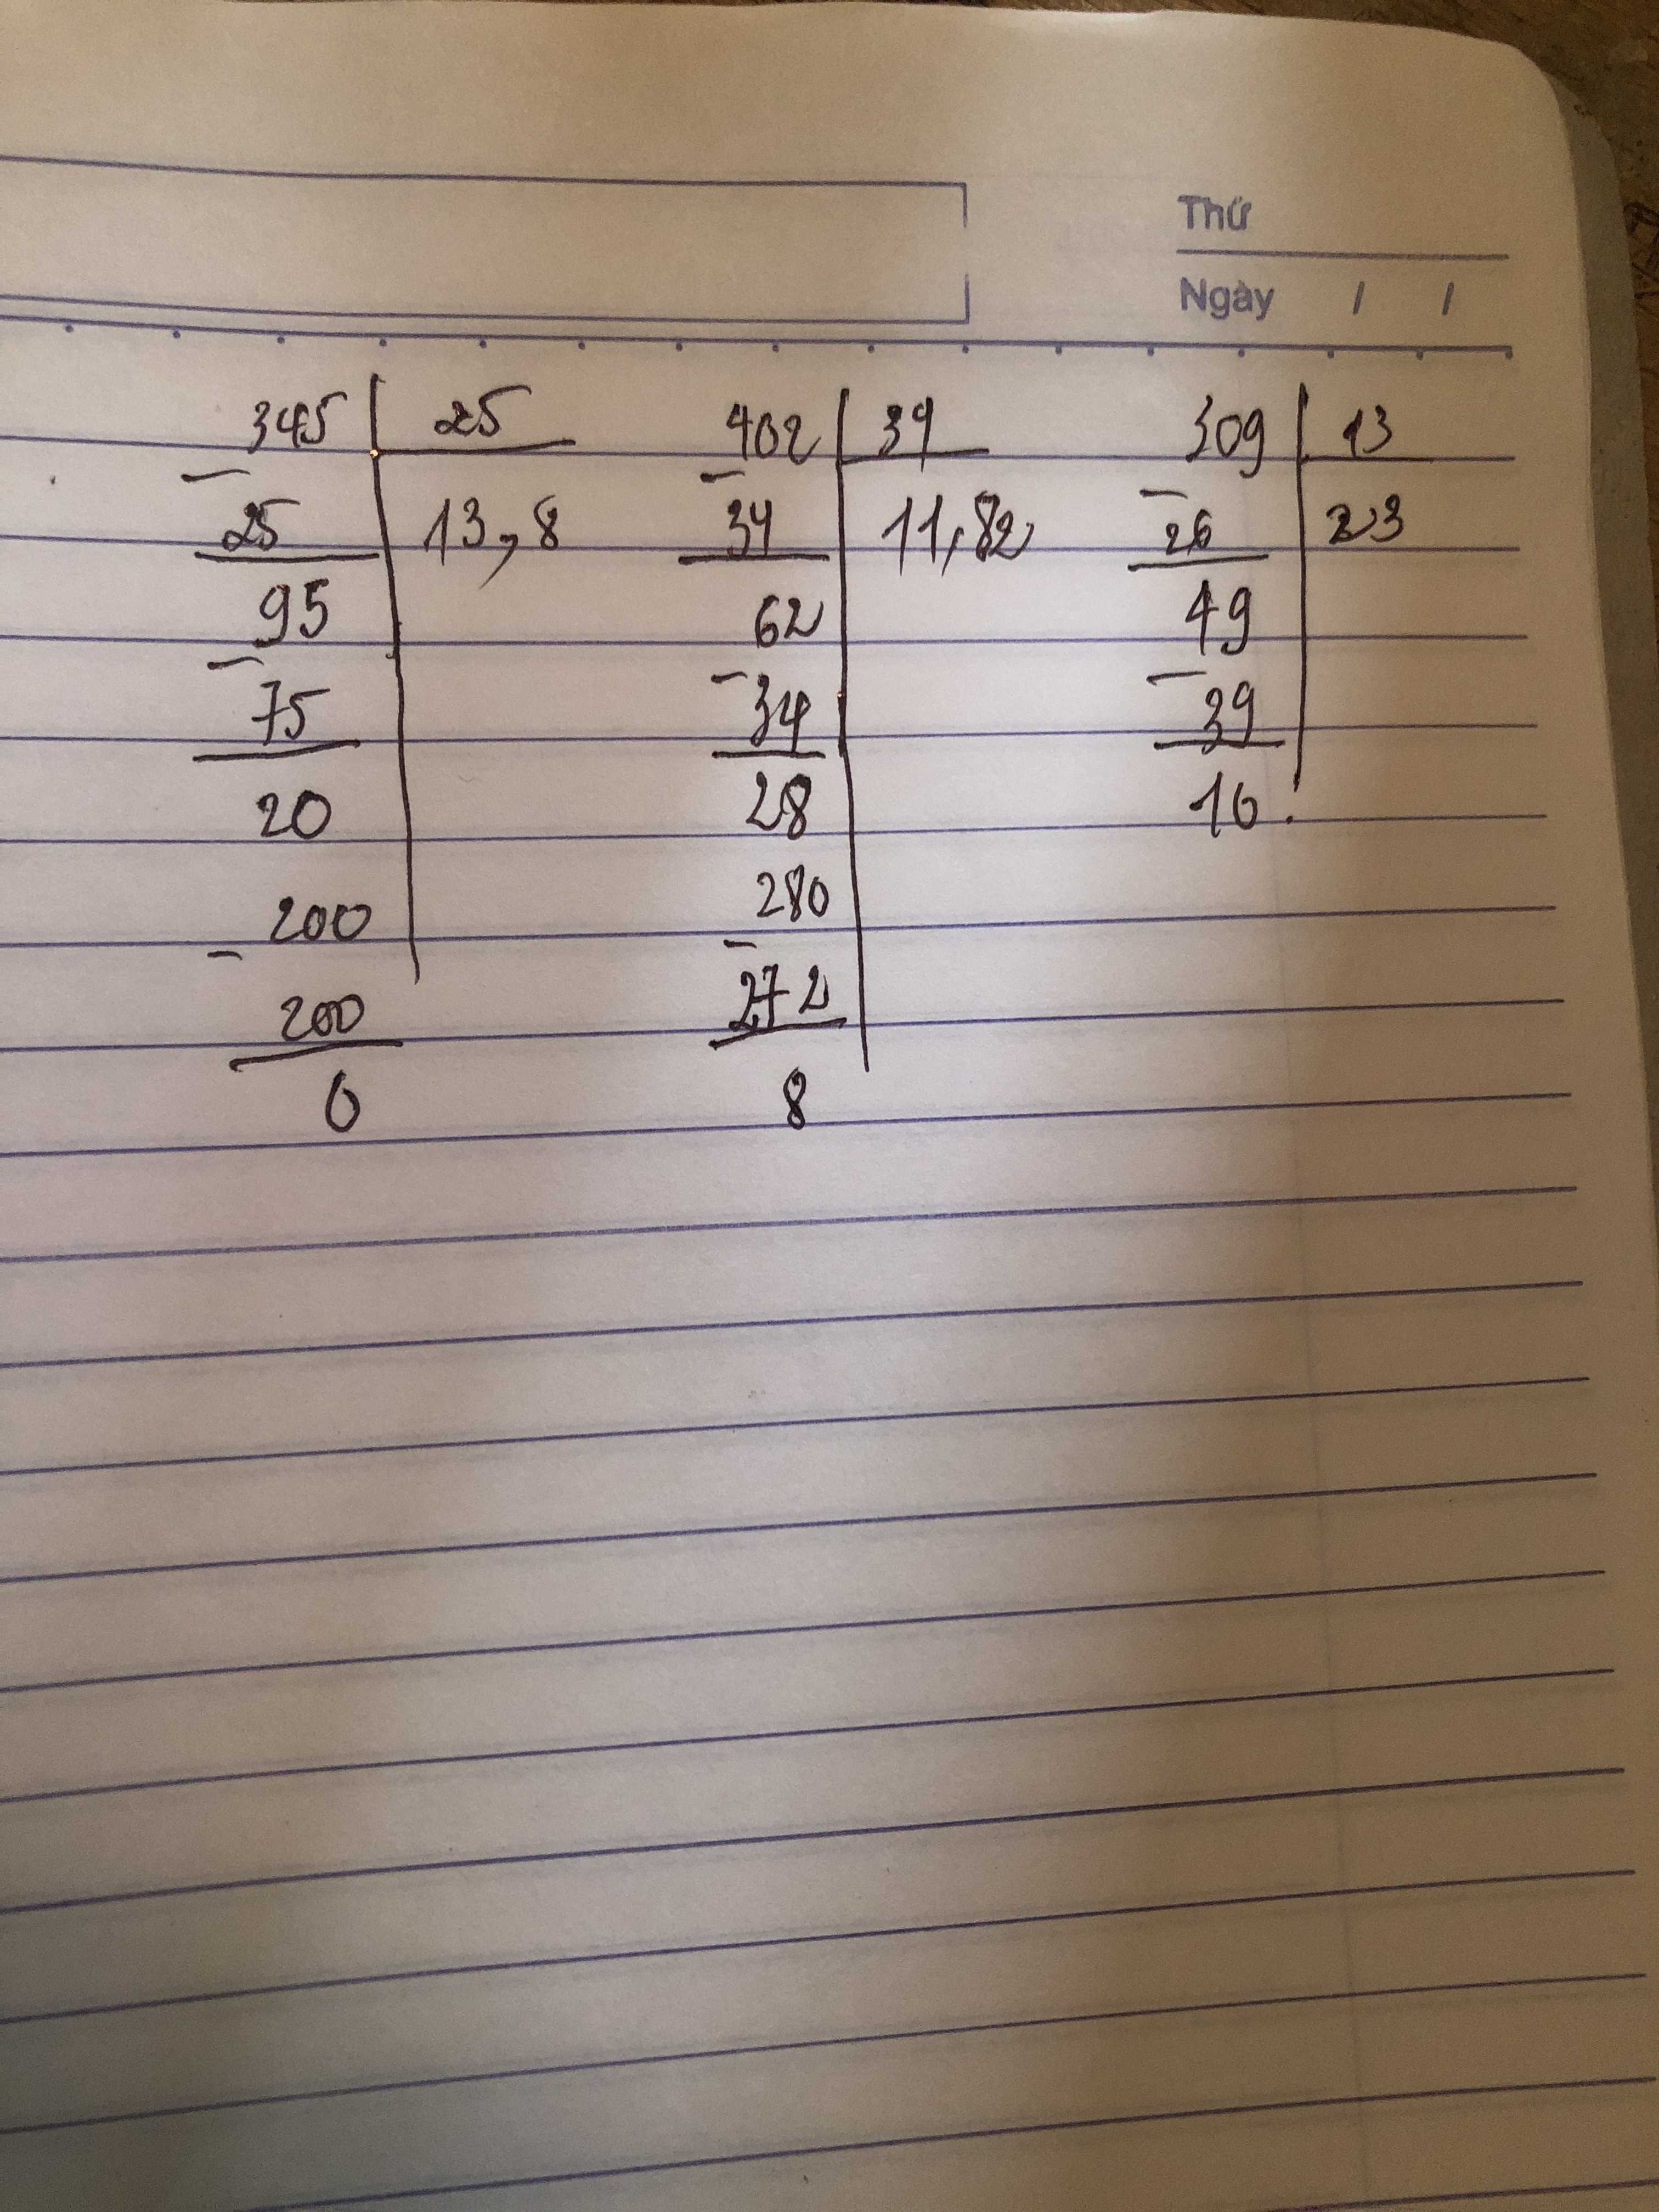 Thứ
Ngày / /
345 25 402 34 309 13
- - -
25 13,8 34 11,82 26 23
95 62 49
- - -
75 34 39
20 28 10.
280
200
- -
272
200
0 8